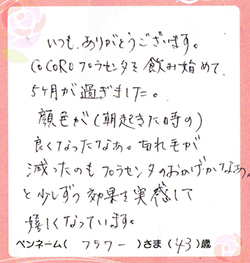 いつも、ありがとうございます。
CoCORO プラセンタを飲み始めて、
5ヶ月が過ぎました。
顔色が（朝起きた時の）
良くなったなぁ。切れ毛が
減ったのもプラセンタのおかげかなぁ。
と少しずつ効果を実感して
嬉しくなっています。
ペンネーム（ フラワー ）さま（ 43 ）歳